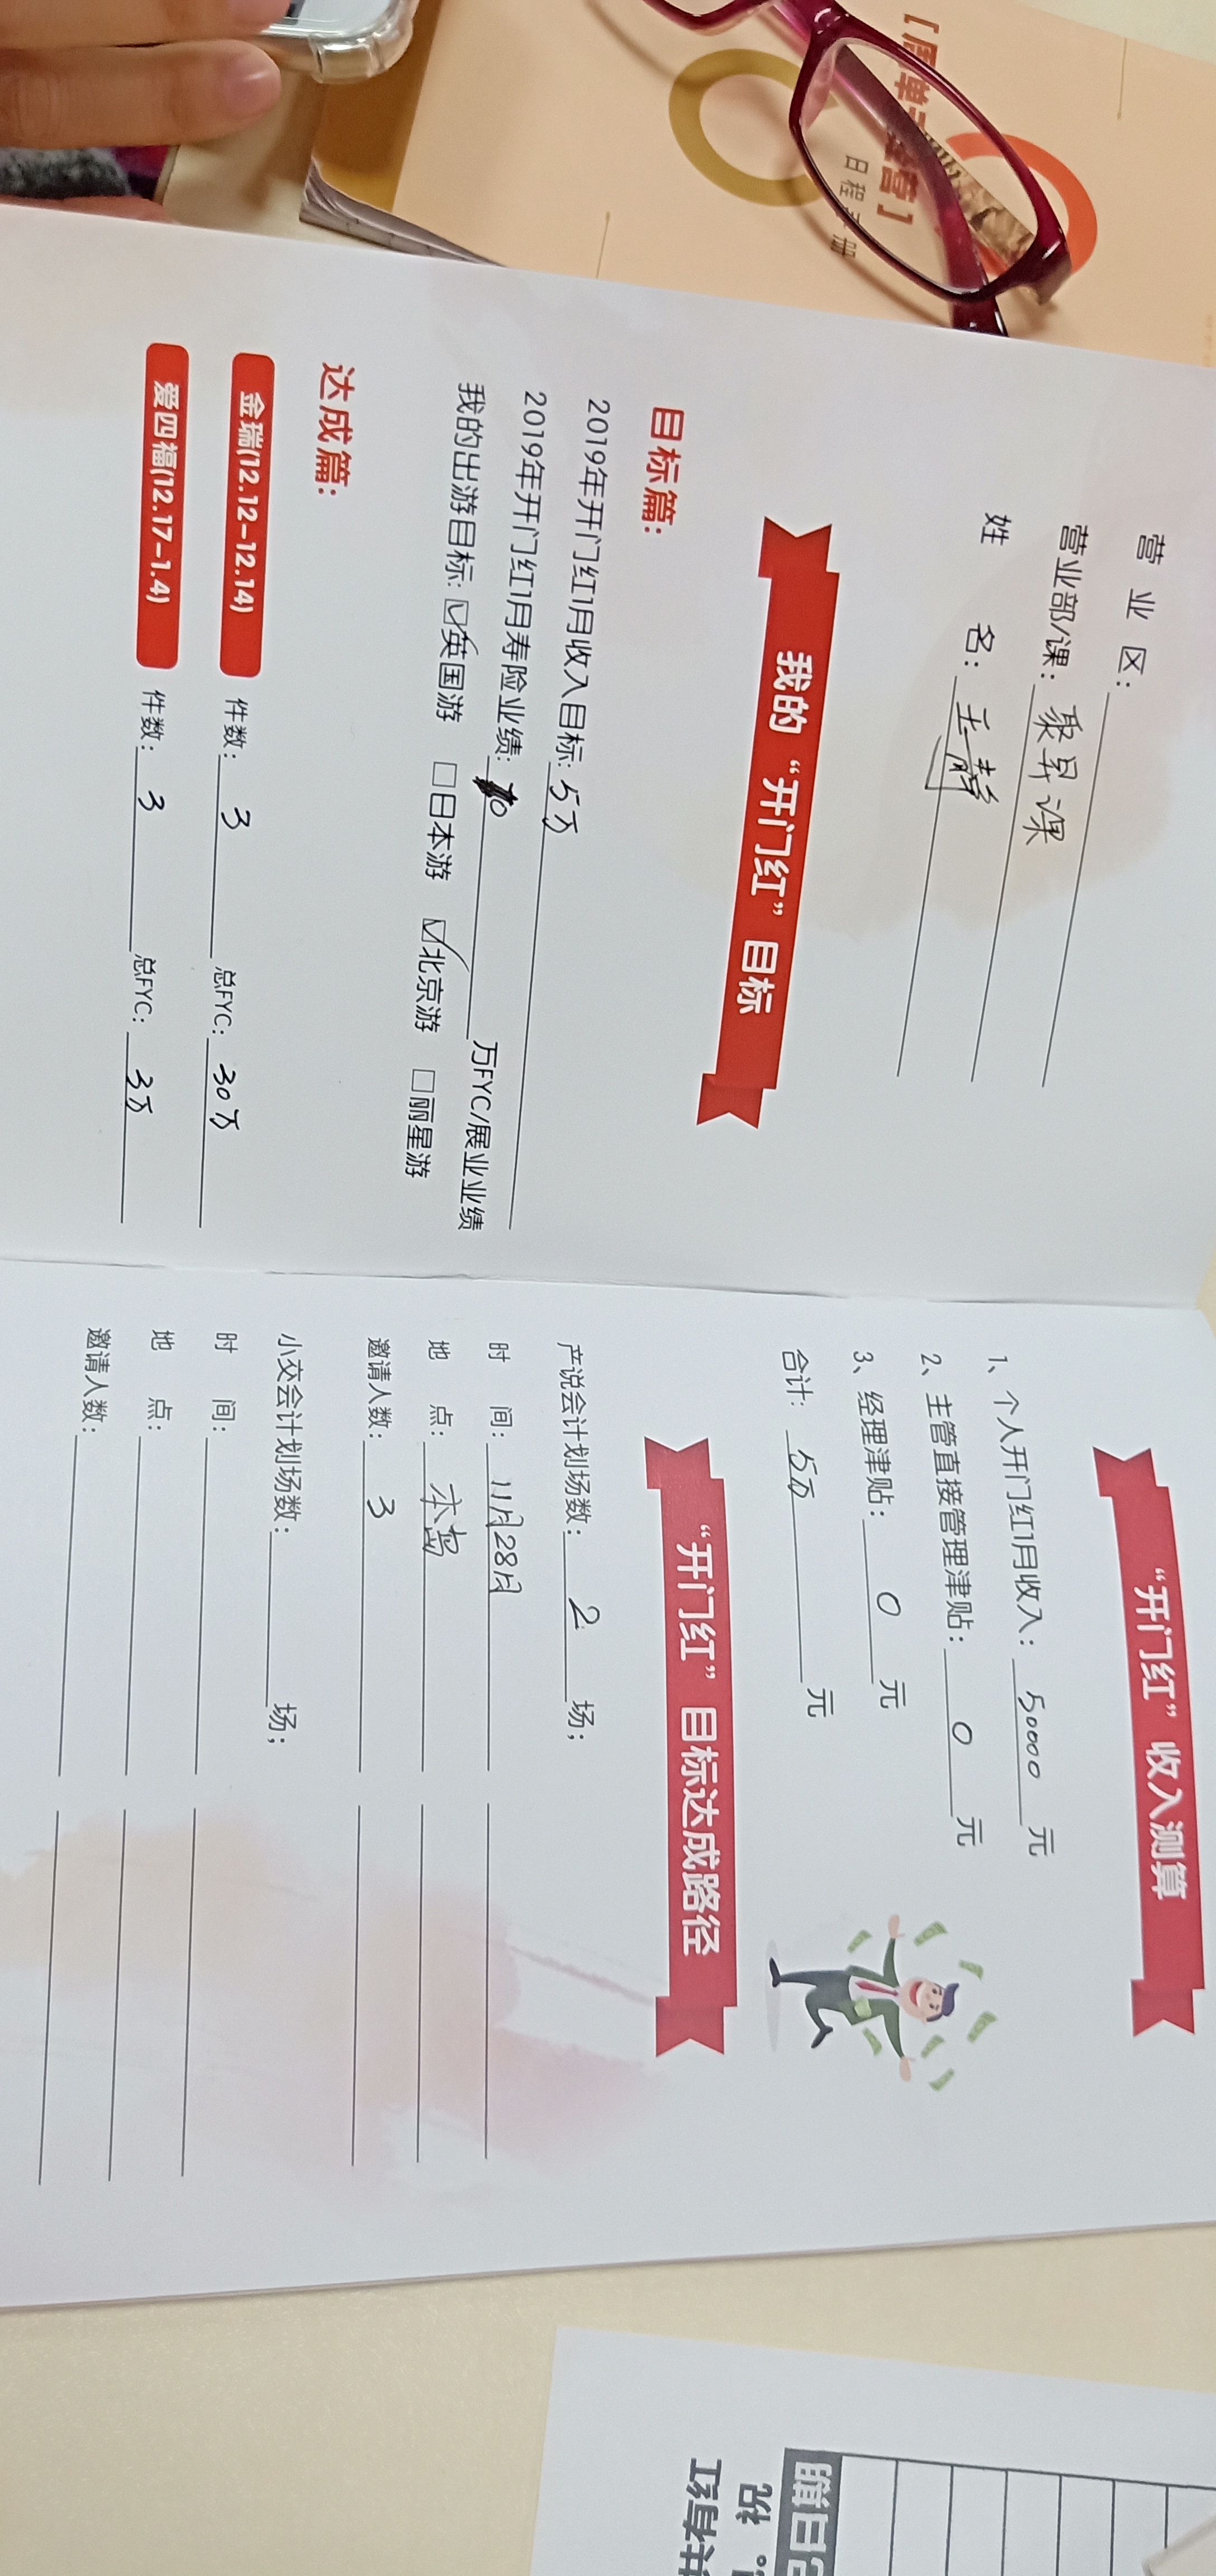 营业区:
营业部/课: 聚昇课
姓名: 王
我的“开门红”目标
目标篇:
2019年开门红1月收入目标: 5万
2019年开门红1月寿险业绩: 10 万FYC/展业业绩
我的出游目标: ☑英国游 □日本游 ☑北京游 □丽星游
达成篇:
金瑞(12.12-12.14) 件数: 3 总FYC: 30万
爱四福(12.17-1.4) 件数: 3 总FYC: 3万
“开门红”收入测算
1、个人开门红1月收入: 50000 元
2、主管直接管理津贴: 0 元
3、经理津贴: 0 元
合计: 5万 元
“开门红”目标达成路径
产说会计划场数: 2 场;
时间: 11月28日
地点: 本岛
邀请人数: 3
小交会计划场数: 场;
时间:
地点:
邀请人数:
日程手册